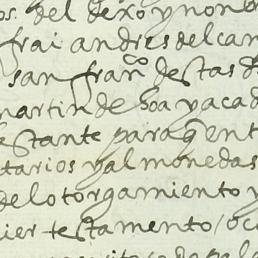 os. del dexo y non
frai andres del can
san fran^co destas d
martin de boa y acad
estante para q ent
tarios y almonedas
del otorgamiento y
ier testamento / o co